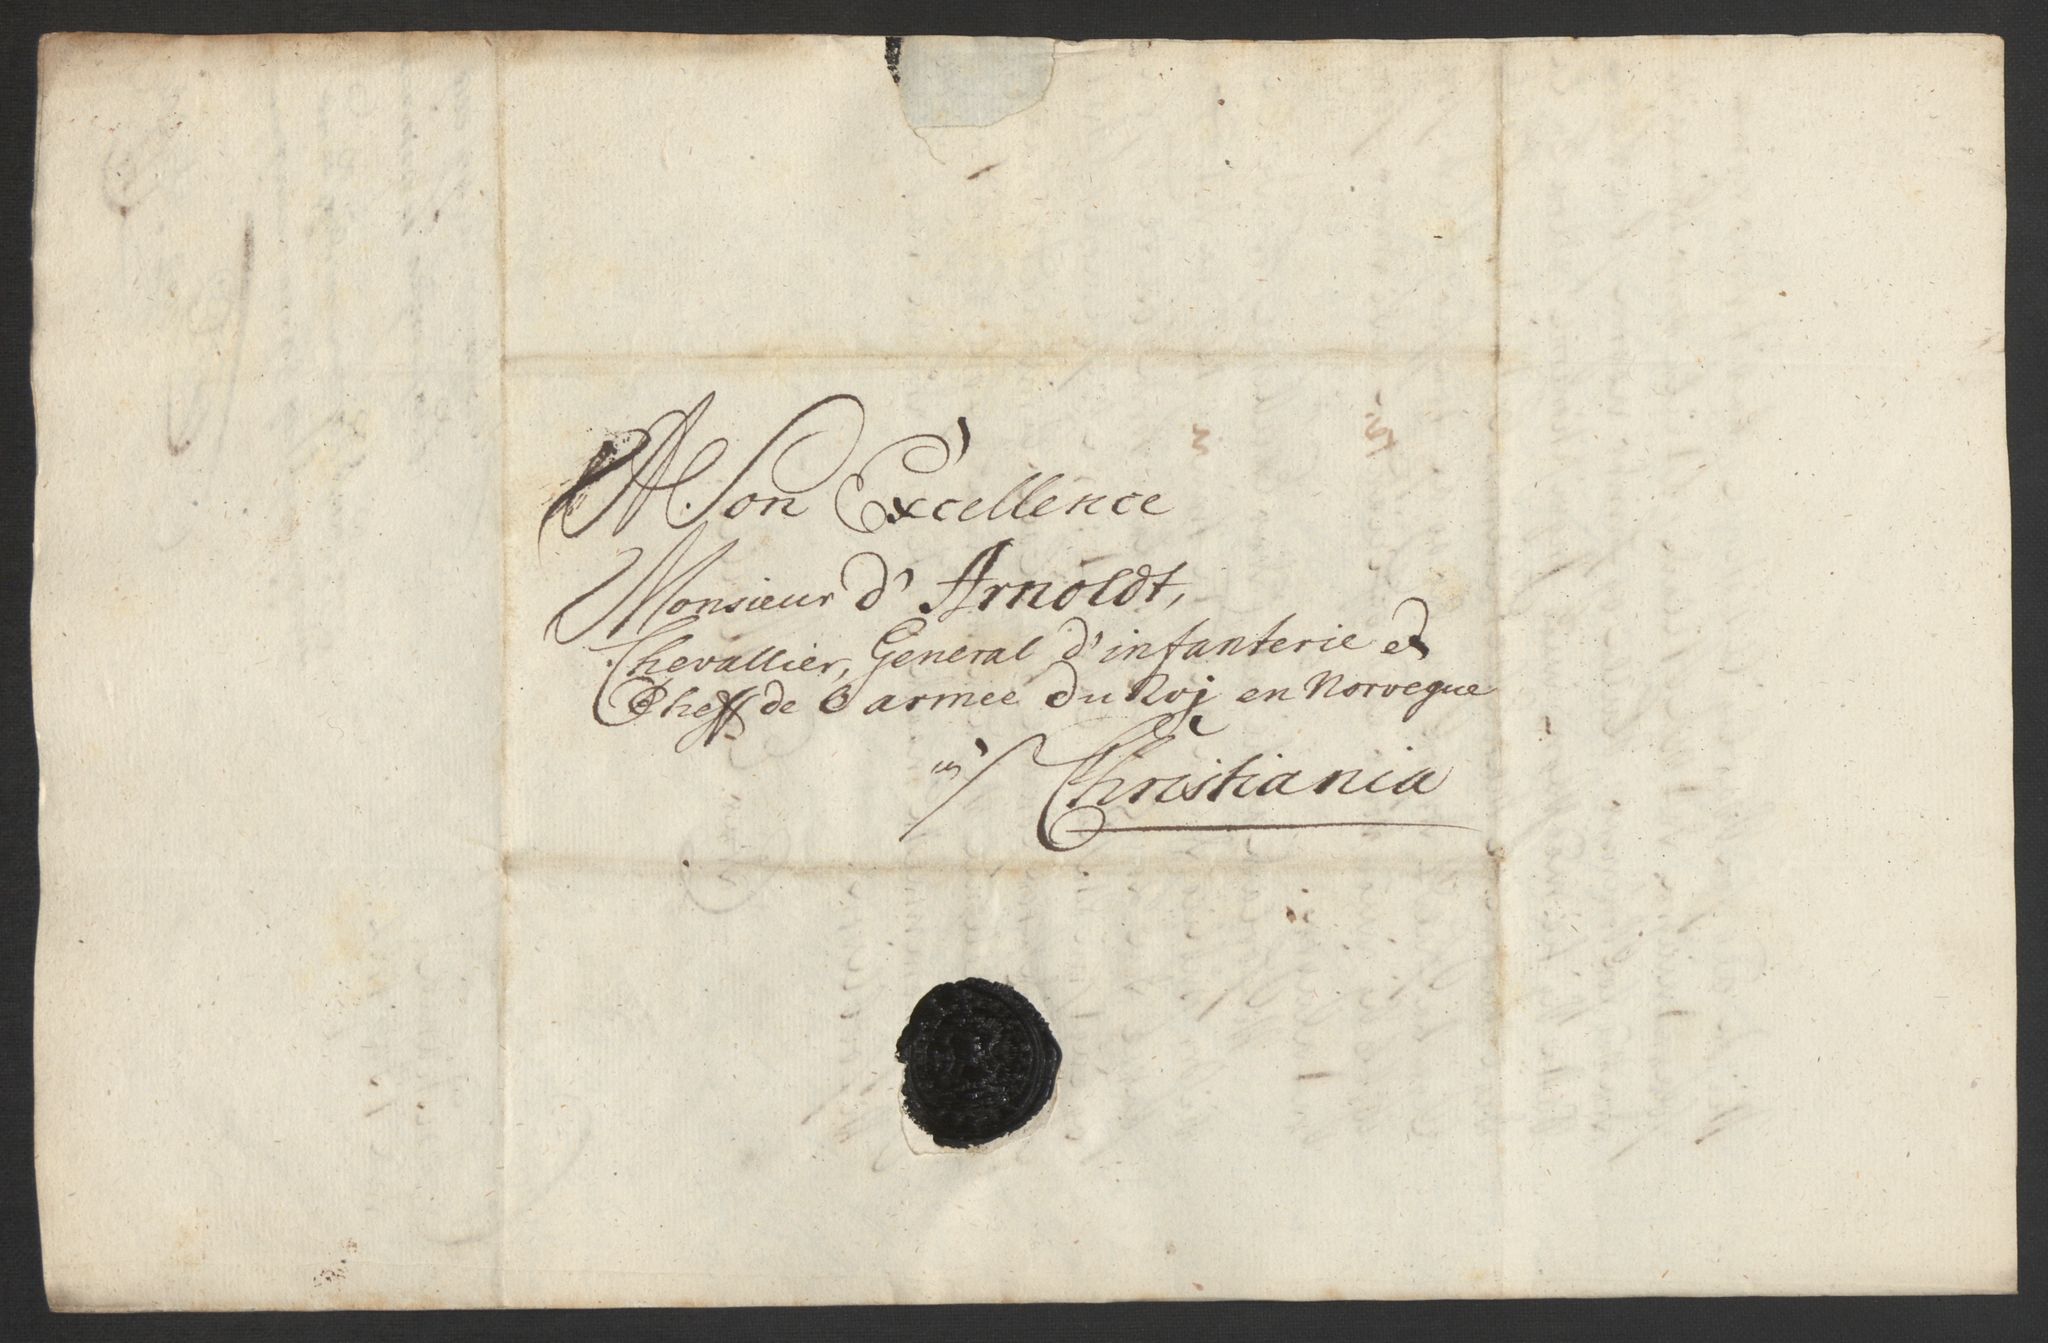 A Son Excellence
Monsieur d' Arnoldt,
Chevallier, General d'infanterie et
Cheff de l'armee du Roj en Norvegue
Christiania